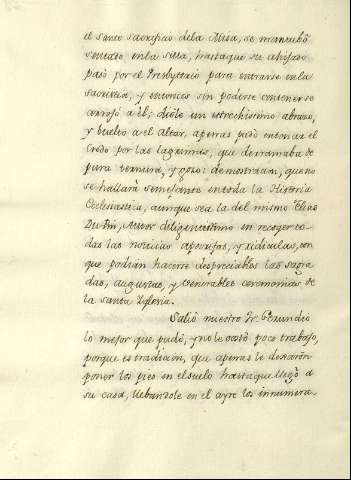 el Santo Sacrificio dela Missa, se mantubo
sentado enla silla, hasta que su ahijado
pasó por el Presbyterio para entrarse enla
sacristia, y entonces sin poderse contenerse
arrojó à èl; dióle un estrechissimo abrazo,
y buelto à el Altar, apenas pudo entonar el
Credo por las lagrimas, que derramaba de
pura ternura, y gozo: demostracion, que no
se hallarà semejante entoda la Historia
Eclesiastica, aunque sea la del mismo Elias
Du-Pin, Autor diligentissimo en recoger to-
das las noticias apocrifas, y ridiculas, con
que podian hacerse despreciables las sagra-
das, augustas, y venerables ceremonias de
la santa Iglesia.
Salió nuestro Fr. Gerundio
lo mejor que pudo, y no le costò poco trabajo,
porque es tradicion, que apenas le dexaron
poner los pies en el suelo hasta que llegò à
su casa, llebandole en el ayre los innumera-